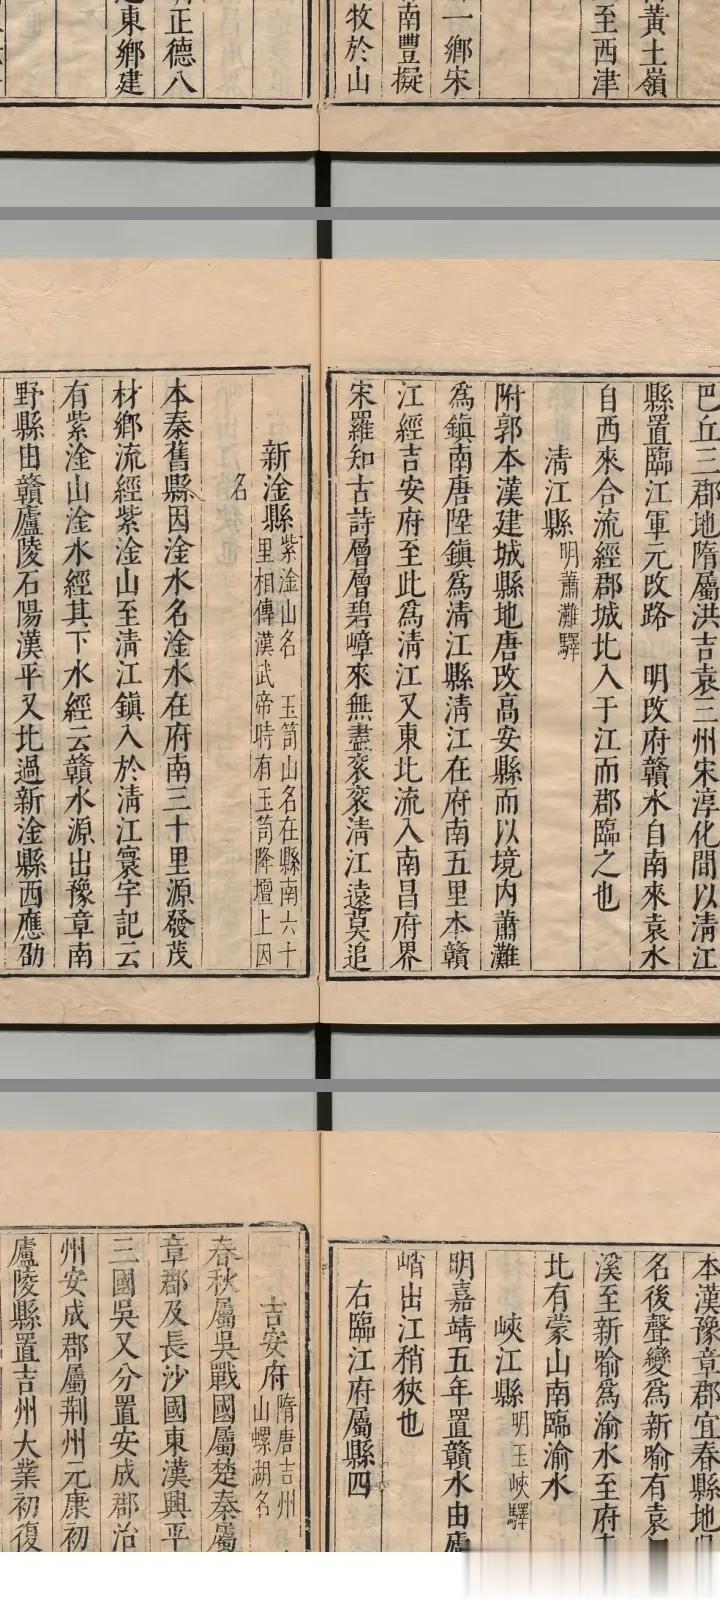 黃土嶺
至西津
一鄉宋
南豐擬
牧於山
明正德八
東鄉建
巴丘三郡地隋屬洪吉袁三州宋淳化間以清江
縣置臨江軍元改路　明改府贛水自南來袁水
自西來合流經郡城北入于江而郡臨之也
清江縣明蕭灘驛
附郭本漢建城縣地唐改高安縣而以境內蕭灘
爲鎮南唐陞鎮爲清江縣清江在府南五里本贛
江經吉安府至此爲清江又東北流入南昌府界
宋羅知古詩層層碧嶂來無盡袞袞清江遠莫追
新淦縣紫淦山名　玉笥山名在縣南六十
里相傳漢武帝時有玉笥降壇上因
名
本秦舊縣因淦水名淦水在府南三十里源發茂
材鄉流經紫淦山至清江鎮入於清江寰宇記云
有紫淦山淦水經其下水經云贛水源出豫章南
野縣由贛廬陵石陽漢平又北過新淦縣西應劭
本漢豫章郡宜春縣地
名後聲變爲新喻有袁
溪至新喻爲渝水至府
北有蒙山南臨渝水
峽江縣明玉峽驛
明嘉靖五年置贛水由廬
峭出江稍狹也
右臨江府屬縣四
吉安府隋唐吉州
山螺湖名
春秋屬吳戰國屬楚秦屬
章郡及長沙國東漢興平
三國吳又分置安成郡治
州安成郡屬荆州元康初
廬陵縣置吉州大業初復